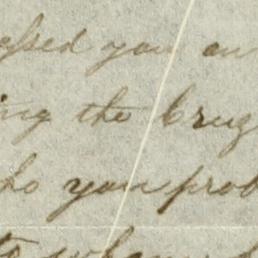 essed you an
ing the brug
ho you prob
to whom